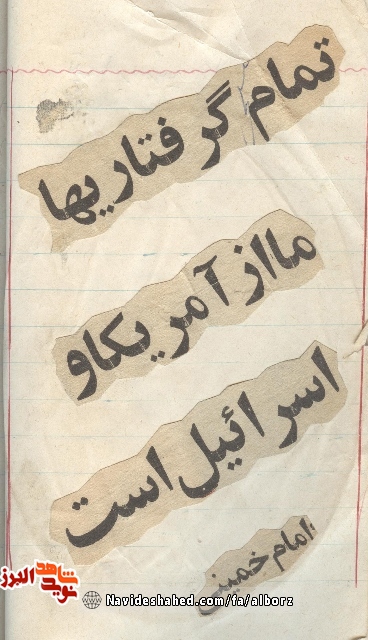 تمام گرفتاریها
ما از آمریکا و
اسرائیل است
امام خمینی
نوید شاهد البرز
Navideshahed.com/fa/alborz